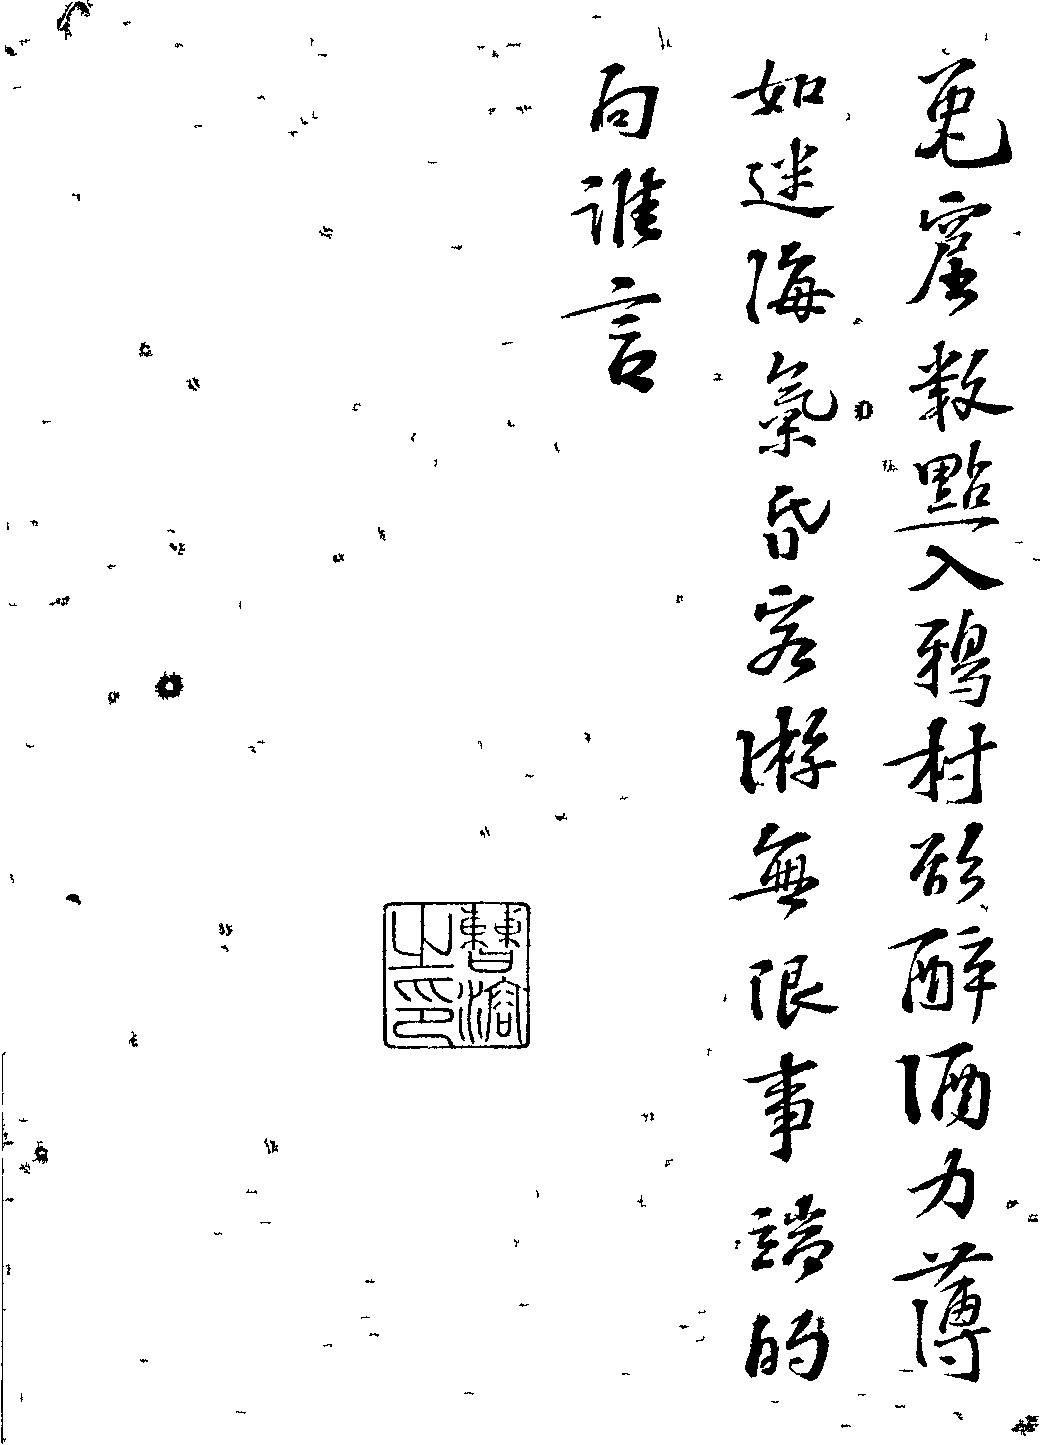 兔窟數點入鴉村欲醉酒力薄
如迷海氣昏客游無限事端的
向誰言
曹溶之印